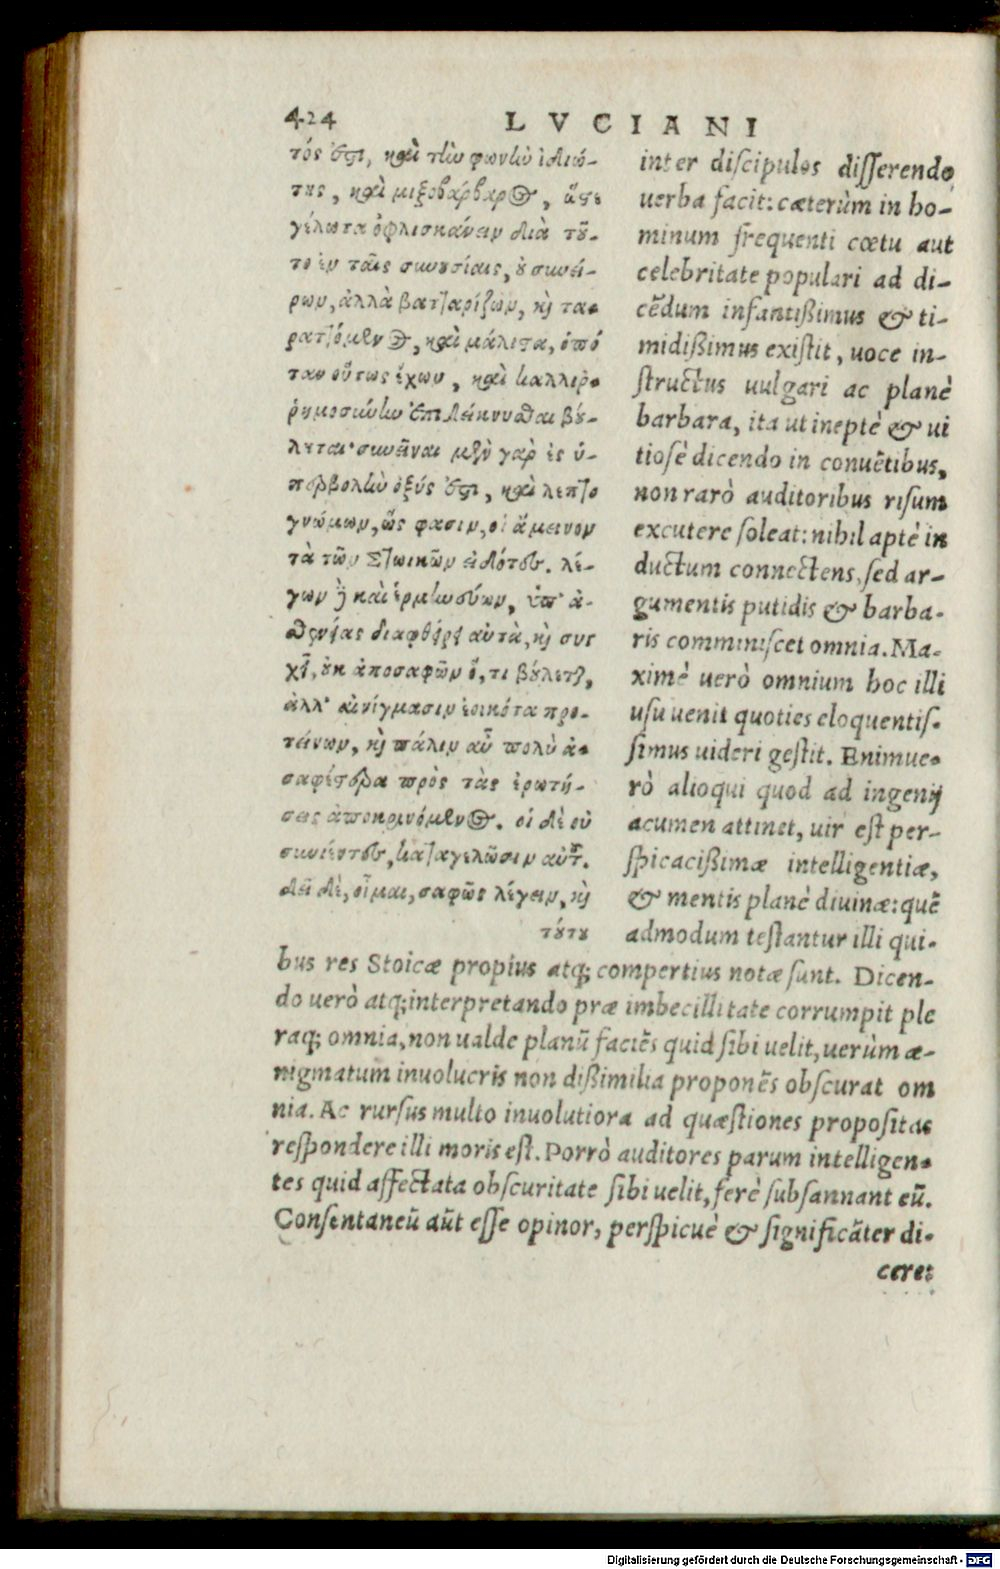 424 LVCIANI
τός ἐστι, καὶ τὴν φωνὴν ἰδιώ-
της, καὶ μιξοβάρβαρος, ὥστε
γέλωτα ὀφλισκάνειν διὰ τοῦ-
το ἐν ταῖς συνουσίαις, οὐ συνεί-
ρων, ἀλλὰ βατταρίζων, καὶ τα-
ραττόμενος, καὶ μάλιστα, ὁπό
ταν οὕτως ἔχων, καὶ καλλιρ-
ρημοσύνην ἐπιδείκνυσθαι βού-
ληται· συνεῖναι μὲν γὰρ ἐς ὑ-
περβολὴν ὀξύς ἐστι, καὶ λεπτο
γνώμων, ὥς φασιν, οἱ ἄμεινον
τὰ τῶν Στωικῶν εἰδότες. λέ-
γων δὲ καὶ ἑρμηνεύων, ὑπ' ἀ-
σθενείας διαφθείρει αὐτὰ, καὶ συγ
χεῖ, οὐκ ἀποσαφῶν ὅ, τι βούλεται,
ἀλλ' αἰνίγμασιν ἐοικότα προ-
τείνων, καὶ πάλιν αὖ πολὺ ἀ-
σαφέστερα πρὸς τὰς ἐρωτή-
σεις ἀποκρινόμενος. οἱ δὲ οὐ
συνιέντες, καταγελῶσιν αὐτοῦ.
δεῖ δὲ, οἶμαι, σαφῶς λέγειν, καὶ
τούτου
inter discipulos disserendo
uerba facit: cæterùm in ho-
minum frequenti cœtu aut
celebritate populari ad di-
cēdum infantißimus & ti-
midißimus existit, uoce in-
structus uulgari ac planè
barbara, ita ut ineptè & ui
tiosè dicendo in conuētibus,
non rarò auditoribus risum
excutere soleat: nihil aptè in
ductum connectens, sed ar-
gumentis putidis & barba-
ris comminiscet omnia. Ma-
ximè uerò omnium hoc illi
usu uenit quoties eloquentis-
simus uideri gestit. Enimue-
rò alioqui quod ad ingenij
acumen attinet, uir est per-
spicacißimæ intelligentiæ,
& mentis planè diuinæ: quē
admodum testantur illi qui-
bus res Stoicæ propius atq; compertius notæ sunt. Dicen-
do uerò atq; interpretando præ imbecillitate corrumpit ple
raq; omnia, non ualde planū faciēs quid sibi uelit, uerùm æ-
nigmatum inuolucris non dißimilia proponēs obscurat om
nia. Ac rursus multo inuolutiora ad quæstiones propositas
respondere illi moris est. Porrò auditores parum intelligen-
tes quid affectata obscuritate sibi uelit, ferè subsannant eū.
Consentaneū aūt esse opinor, perspicuè & significāter di-
cere:
Digitalisierung gefördert durch die Deutsche Forschungsgemeinschaft - DFG